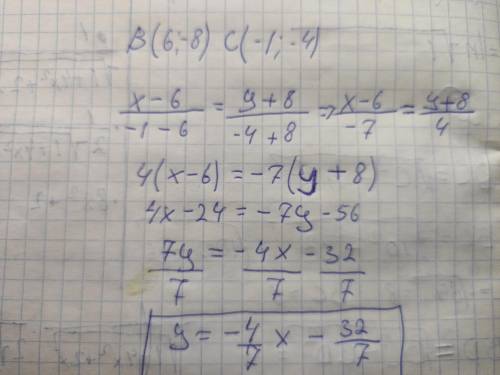 B(6;-8) C(-1;-4)
x-6/-1-6 = y+8/-4+8 => x-6/-7 = y+8/4
4(x-6)=-7(y+8)
4x-24=-7y-56
7y/7 = -4x/7 - 32/7
y = -4/7 x - 32/7